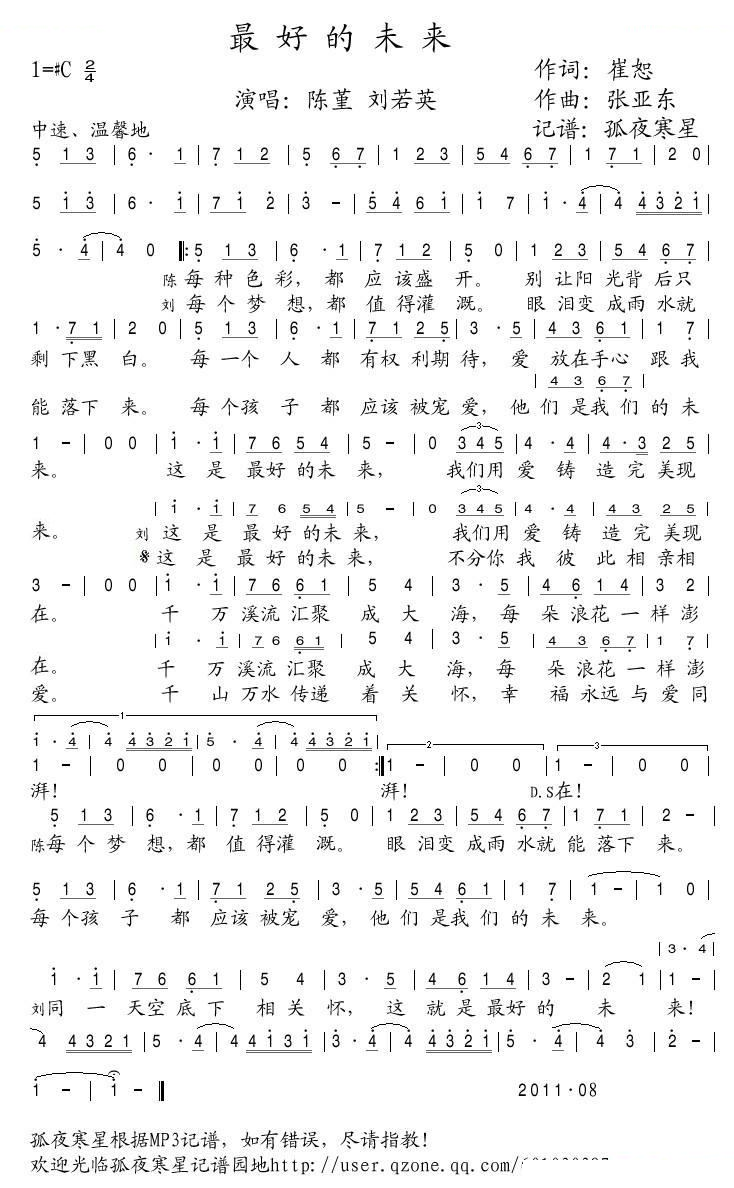 最好的未来
1=#C 2/4
作词：崔恕
演唱：陈堇 刘若英
作曲：张亚东
中速、温馨地
记谱：孤夜寒星
5 1 3 | 6 · 1 | 7 1 2 | 5 6 7 | 1 2 3 | 5 4 6 7 | 1 7 1 | 2 0 |
5 1 3 | 6 · 1 | 7 1 2 | 3 - | 5 4 6 1 | 1 7 | 1 · 4 | 4 4 3 2 1 |
5 · 4 | 4 0 ‖: 5 1 3 | 6 · 1 | 7 1 2 | 5 0 | 1 2 3 | 5 4 6 7 |
陈每种色彩，都应该盛开。别让阳光背后只
刘每个梦想，都值得灌溉。眼泪变成雨水就
1 · 7 1 | 2 0 | 5 1 3 | 6 · 1 | 7 1 2 5 | 3 · 5 | 4 3 6 1 | 1 7 |
剩下黑白。每一个人都有权利期待，爱放在手心跟我
| 4 3 6 7 |
能落下来。每个孩子都应该被宠爱，他们是我们的未
1 - | 0 0 | 1 · 1 | 7 6 5 4 | 5 - | 0 3 4 5 | 4 · 4 | 4 · 3 2 5 |
来。这是最好的未来，我们用爱铸造完美现
| 1 · 1 | 7 6 5 4 | 5 - | 0 3 4 5 | 4 · 4 | 4 3 2 5 |
来。刘这是最好的未来，我们用爱铸造完美现
𝄋这是最好的未来，不分你我彼此相亲相
3 - | 0 0 | 1 · 1 | 7 6 6 1 | 5 4 | 3 · 5 | 4 6 1 4 | 3 2 |
在。千万溪流汇聚成大海，每朵浪花一样澎
| 1 · 1 | 7 6 6 1 | 5 4 | 3 · 5 | 4 3 6 7 | 1 7 |
在。千万溪流汇聚成大海，每朵浪花一样澎
爱。千山万水传递着关怀，幸福永远与爱同
1
1 · 4 | 4 4 3 2 1 | 5 · 4 | 4 4 3 2 1 |
1 - | 0 0 | 0 0 | 0 0 :‖ 2 1 - | 0 0 | 3 1 - | 0 0 |
湃！湃！D.S在！
5 1 3 | 6 · 1 | 7 1 2 | 5 0 | 1 2 3 | 5 4 6 7 | 1 7 1 | 2 - |
陈每个梦想，都值得灌溉。眼泪变成雨水就能落下来。
5 1 3 | 6 · 1 | 7 1 2 5 | 3 · 5 | 4 4 6 1 | 1 7 | 1 - | 1 0 |
每个孩子都应该被宠爱，他们是我们的未来。
| 3 · 4 |
1 · 1 | 7 6 6 1 | 5 4 | 3 · 5 | 4 6 4 | 3 - | 2 1 | 1 - |
刘同一天空底下相关怀，这就是最好的未来！
4 4 3 2 1 | 5 · 4 | 4 4 1 3 1 | 3 · 4 | 4 4 3 2 1 | 5 · 4 | 4 3 | 2 - |
1 - | 1 - ‖
2011·08
孤夜寒星根据MP3记谱，如有错误，尽请指教！
欢迎光临孤夜寒星记谱园地http://user.qzone.qq.com/